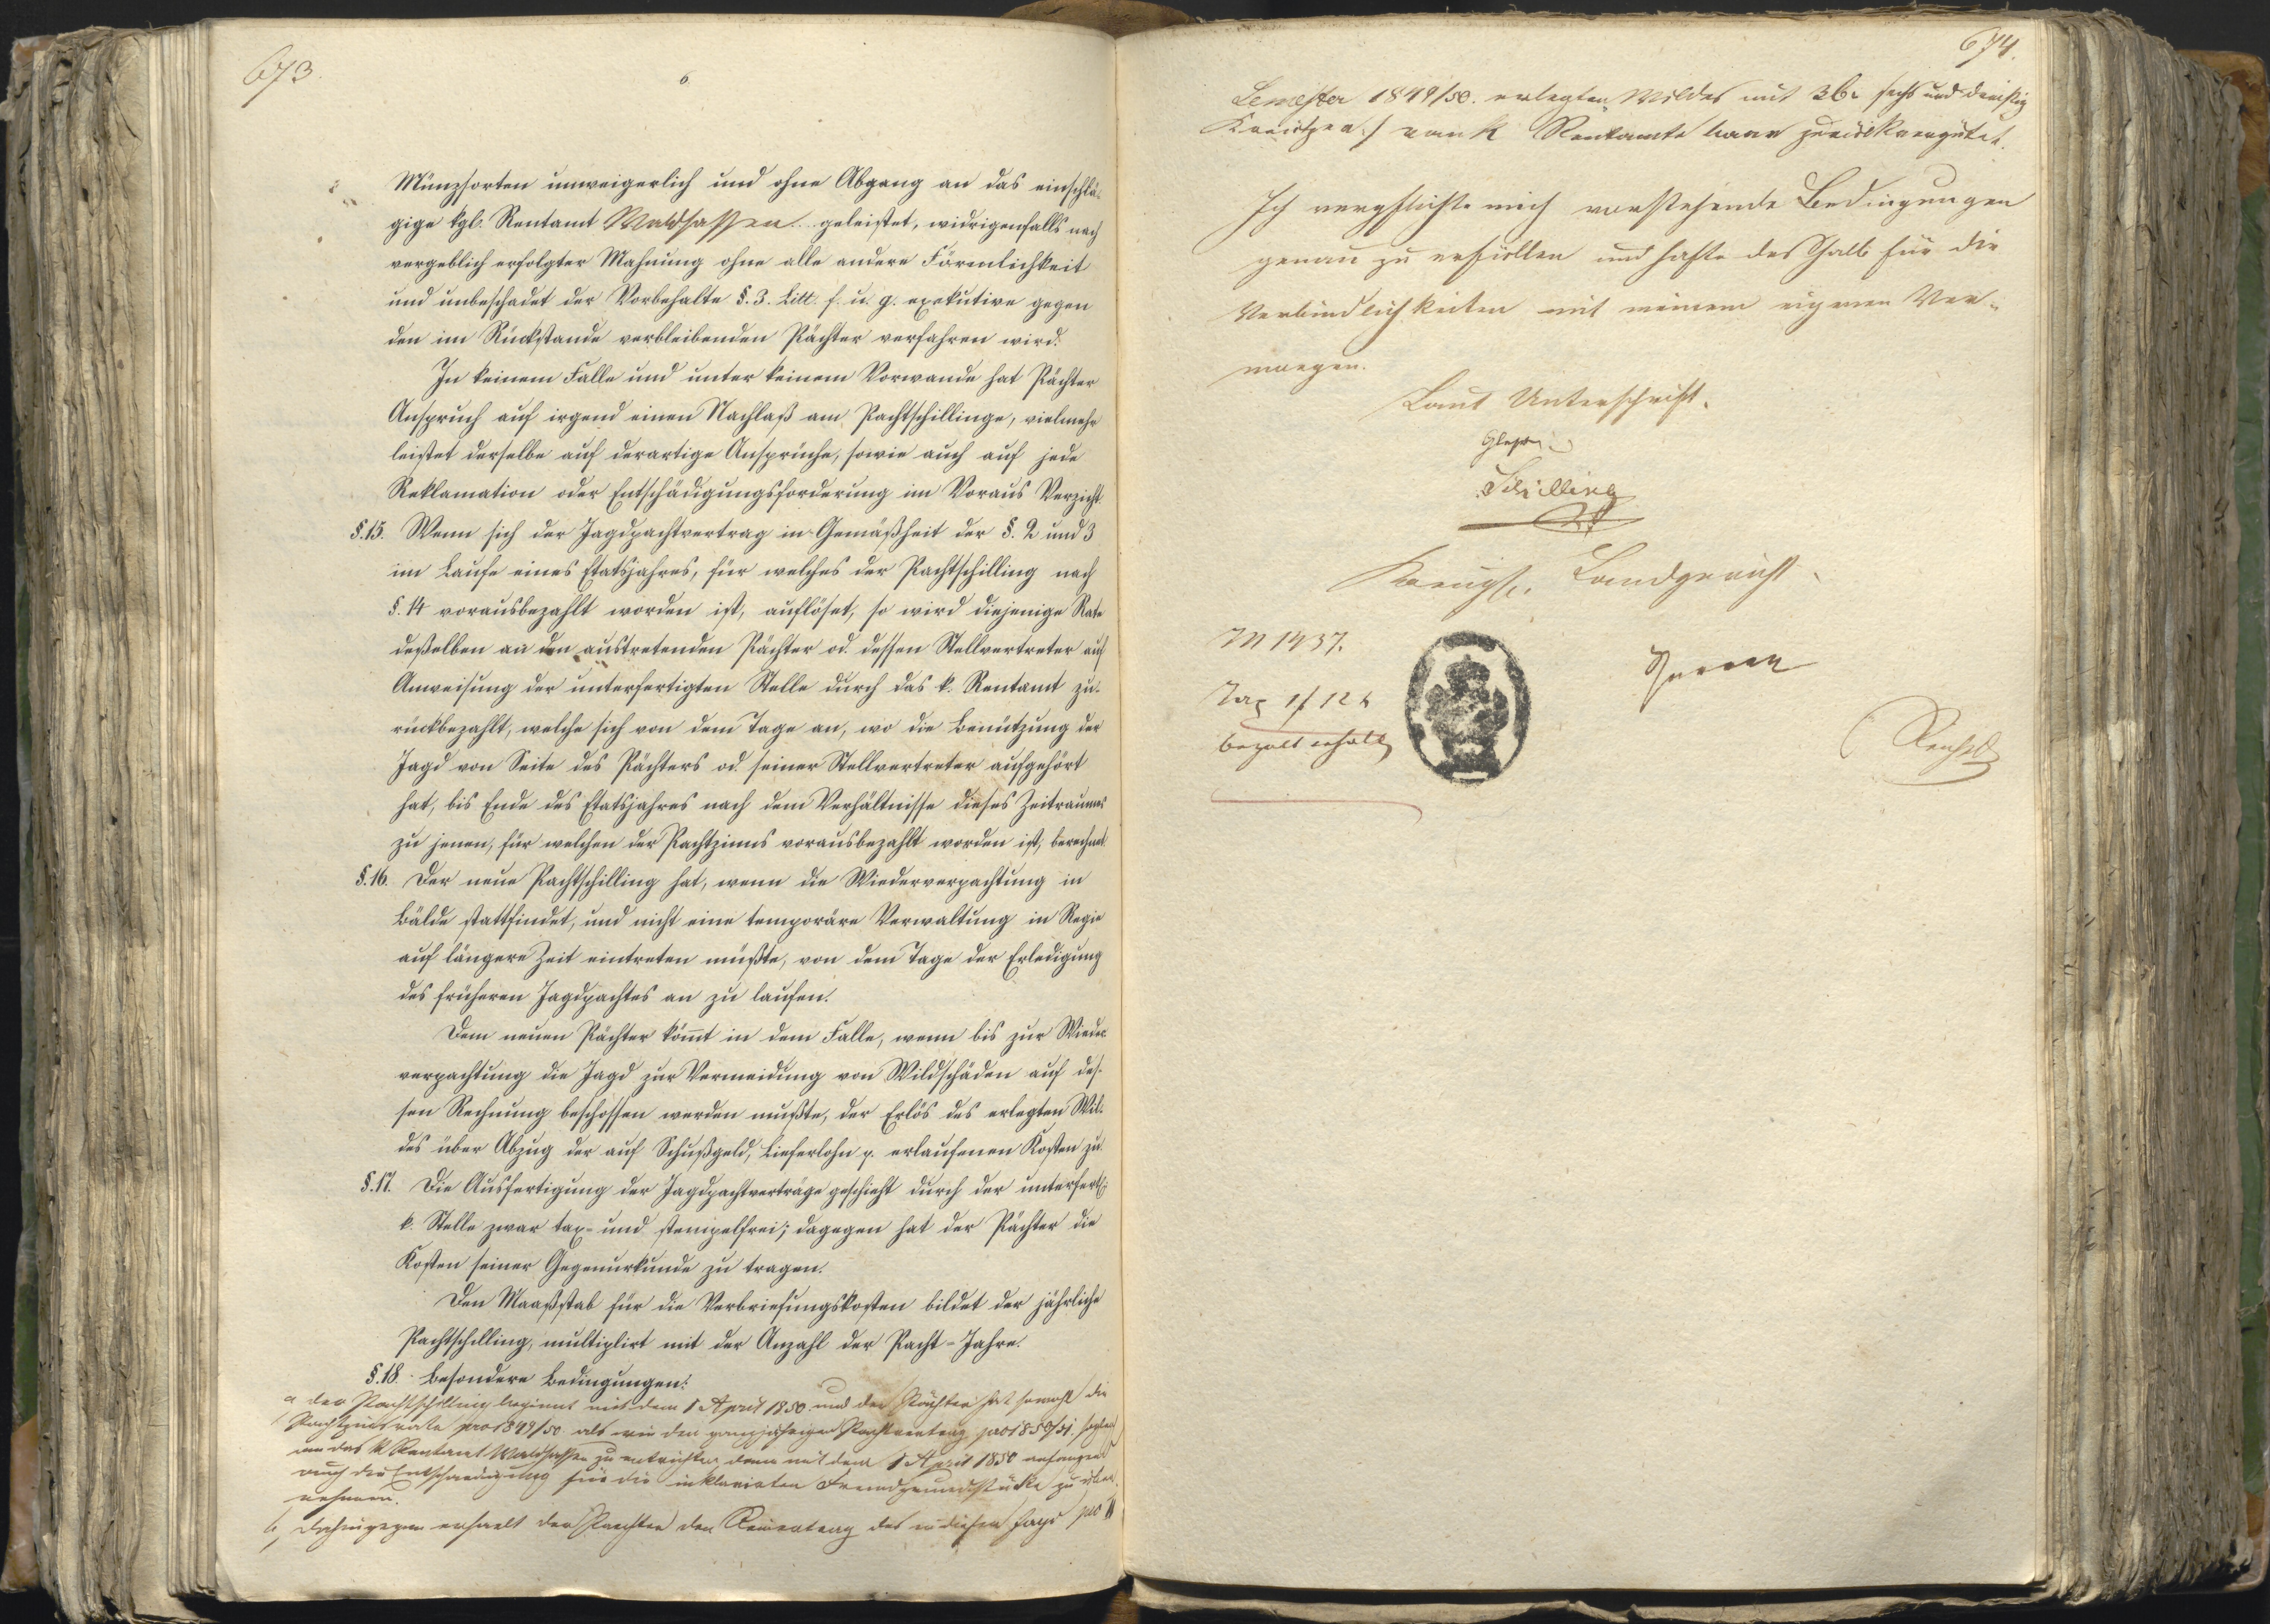 673.
6.
Münzsorten unweigerlich und ohne Abgang an das einschlä-
gige kgl. Rentamt Waldsassen geleistet, widrigenfalls nach
vergeblich erfolgter Mahnung ohne alle andere Förmlichkeit
und unbeschadet der Vorbehalte §. 3. Litt. f. u. g. exekutive gegen
den im Rückstande verbleibenden Pächter verfahren wird.
In keinem Falle und unter keinem Vorwande hat Pächter
Anspruch auf irgend einen Nachlaß am Pachtschillinge, vielmehr
leistet derselbe auf derartige Ansprüche, sowie auch auf jede
Reklamation oder Entschädigungsforderung im Voraus Verzicht.
§. 15. Wenn sich der Jagdpachtvertrag in Gemäßheit der §. 2 und 3
im Laufe eines Etatsjahres, für welches der Pachtschilling nach
§. 14 vorausbezahlt worden ist, auflöset, so wird diejenige Rate
deßelben an den austretenden Pächter od. dessen Stellvertreter auf
Anweisung der unterfertigten Stelle durch das k. Rentamt zu-
rückbezahlt, welche sich von dem Tage an, wo die Benützung der
Jagd von Seite des Pächters od. seiner Stellvertreter aufgehört
hat, bis Ende des Etatsjahres nach dem Verhältnisse dieses Zeitraumes
zu jenen, für welchen der Pachtzinns vorausbezahlt worden ist, berechnet.
§. 16. Der neue Pachtschilling hat, wenn die Wiederverpachtung in
Bälde stattfindet, und nicht eine temporäre Verwaltung in Regie
auf längere Zeit eintreten müßte, von dem Tage der Erledigung
des früheren Jagdpachtes an zu laufen.
Dem neuen Pächter kom̄t in dem Falle, wenn bis zur Wieder-
verpachtung die Jagd zur Vermeidung von Wildschäden auf des-
sen Rechnung beschossen werden mußte, der Erlös des erlegten Wil-
des über Abzug der auf Schußgeld, Lieferlohn p. erlaufenen Kosten zu.
§. 17. Die Ausfertigung der Jagdpachtverträge geschieht durch der unterfert.
k. Stelle zwar tax- und stempelfrei; dagegen hat der Pächter die
Kosten seiner Gegenurkunde zu tragen.
Den Maaßstab für die Verbriefungskosten bildet der jährliche
Pachtschilling, multiplirt mit der Anzahl der Pacht-Jahre.
§. 18. Besondere Bedingungen:
a der Pachtschilling beginnt mit dem 1 April 1850. und der Pächter hat sowohl die
Pachtzinsrate pro 1849/50 als wie den ganzjährigen Pachtbetrag pro 1850/51.
an das k Rentamt Waldsassen zu entrichten, dann mit dem 1 April 1850 anfangend
auch die Entschaedigung für die inklavirten Fremdgrundstücke zu über-
nehmen.
b, dahingegen erhaelt der Paechter den Reinertrag des in diesem Jagd pro II
674.
Semester 1849/50. erlegten Wildes mit 36 sechs und dreißig
Kreutzer / vom k Rentamte baar zurückvergütet.
Ich verpflichte mich vorstehende Bedingungen
genau zu erfüllen und hafte deshalb für die
Verbindlichkeiten mit meinem eigenen Ver-
moegen.
Laut Unterschrift.
Schilling
Koenigl. Landgericht.
M 1437.
Tax 1 f 12 k
bezalt erhalt